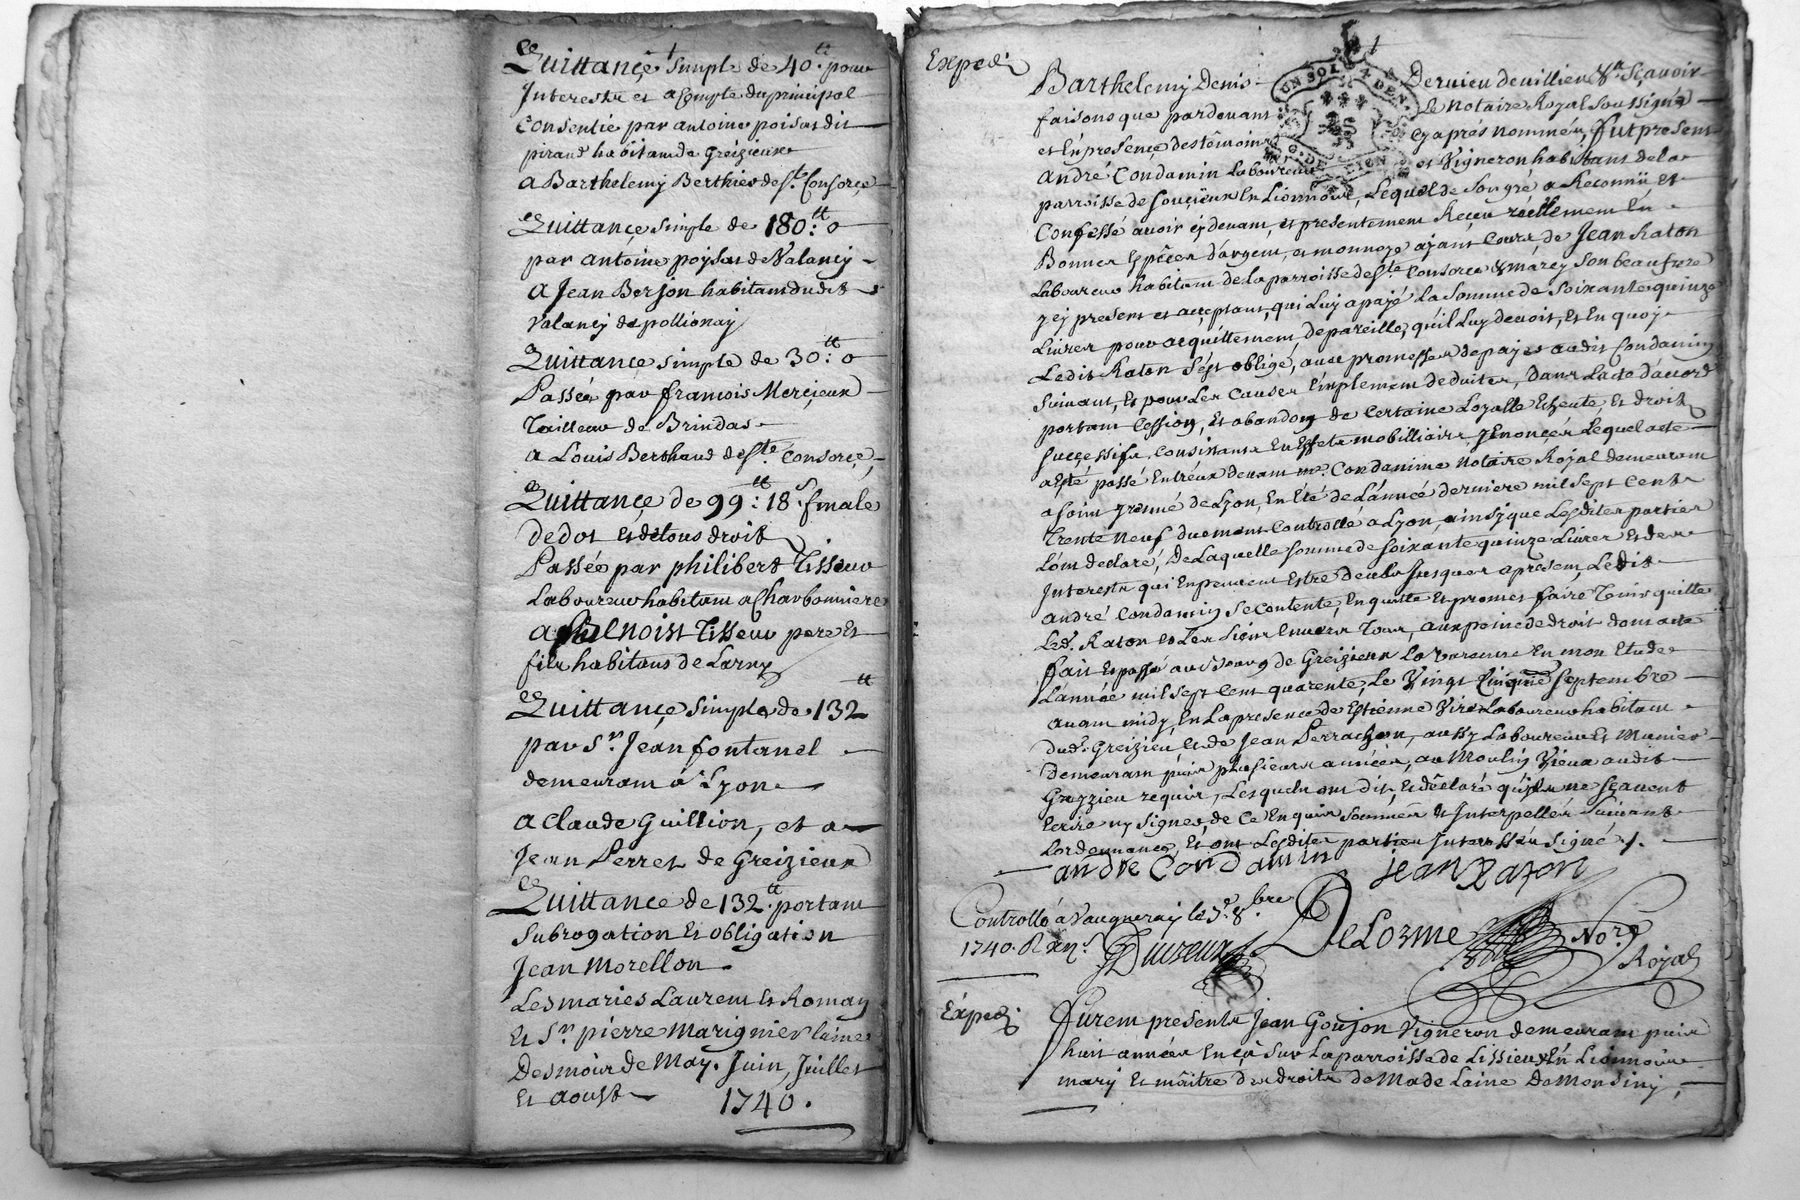 Quittançe simple de 40.tt pour
Interestz et acompte du principal
Consentie par antoine poisat dit
piraud habitam de Greizieux
a Barthelemy Berthier de Ste Consorçe
Quittançe simple de 180:tt 0
par antoine poysat de Valançy
a Jean Berjon habitam dudit
Valançy de pollionay
Quittance simple de 30:tt 0
Passée par francois Merçieux
Tailleur de Brindas
a Louis Berthaud de Ste Consorçe,
Quittançe de 99:tt 18s finale
de dot et de tous droits
Passée par philibert Tisseur
Laboureur habitam a Charbonniere
a Benoist Tisseur pere et
fils habitans de Larny
Quittançe simple de 132tt
par Sr Jean fontanel
demeuram à Lyon
a Claude Guillion, et a
Jean Perret de Greizieux
Quittance de 132.tt portam
Subrogation et obligation
Jean Morellon
Les maries Laurem et Roman
et Sr pierre Marignier laine
Des mois de May. Juin, Juillet
et aoust 1740.
Exped.
UN SOL 4 DEN.
G. DE LION
Barthelemy Denis Dervieu de villieu &a Sçavoir
faisons que pardevant le Notaire Royal soussigné
et en presençe des témoins cy aprés nommés, fut present
andré Condamin Laboureur et Vigneron habitant de la
parroisse de souçieux en Lionnois, Lequel de son gré a Reconnü et
Confessé avoir cy devam, et presentement Reçeu réellement en
Bonnes Espéces d'argent, et monnoye ajant Cours, de Jean Raton
Laboureur habitam de la parroisse de Ste Consorce & marcy son beaufrere
ycy present et acceptant, qui Luy a payé La somme de soixante quinze
Livres pour acquittement, de pareille, qu'il Luy devoit, et En quoy
Ledit Raton s'est obligé, avec promesse de payer audit Condamin
suivant, et pour Les Causes simplement deduites, dans Lacte d'accord
portam Cession, et abandon de Certaine Loyalle Echeute, et droits
suççessifs, Consistans en Effets mobilliairs yEnonçés Lequel acte
a Esté passé Entréux devam me. Condamine notaire Royal demeuram
a soint yrenné de Lyon, en l'été de L'année derniere mil sept cent
trente neuf duement Controllé a Lyon, ainsy que Lesdites parties
L'om declaré, De Laquelle somme de soixante quinze Livres et des
Interestz qui en peuvent estre deubs Jusques apresem, Ledit
andré Condamin se Contente, en quitte et promet faire Tenir quitte
Led. Raton et Les siens Envers Tous, aux peine de droit dom acte
fait et passé au bourg de Greizieu La varenne en mon Etude
L'année mil sept Cent quarente, Le Vingt Cinquie septembre
avam midy, en La presençe de Estienne Viré Laboureur habitam
dud. Greizieu, et de Jean Perrachon, aussy Laboureur et Munier
demeuram puis plusieurs années, au Moulin Vieux audit
Greyzieu requis, Lesquels om dit, et déclaré qu'ils ne sçavent
Ecrire ny signer, de Ce Enquis sommés et Interpellés suivant
Lordennance, et ont Lesdites parties Interessées signé /.
andre Condamin Jean Raton
Controllé a Vaugneray le 3e 8.bre
1740. R xns. Duvieux DeLorme Nore
Royal
Exped.
Furem presents Jean Goujon Vigneron demeuram puis
huit années en ça sur La parroisse de Lissieux en Lionnois
mary et maître des droits de Madelaine Demonsiny,